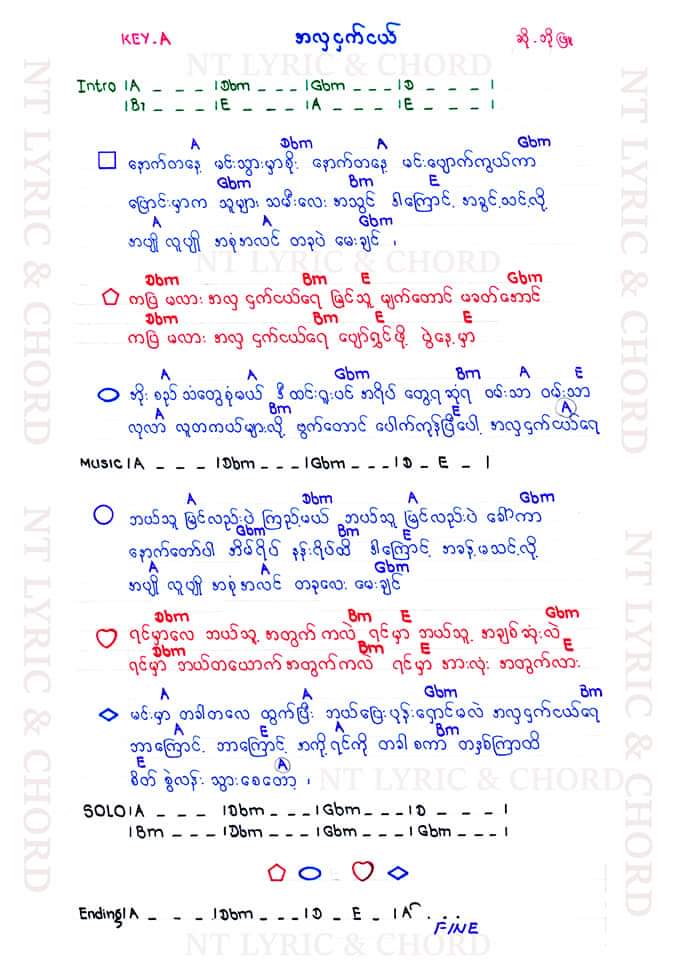 KEY.A အလှငှက်ငယ် ဆို-ဘိုဖြူ
NT LYRIC & CHORD
Intro |A _ _ _ |Dbm _ _ _ |Gbm _ _ _ |D _ _ _ |
|B7 _ _ _ |E _ _ _ |A _ _ _ |E _ _ _ |
A Dbm A Gbm
နောက်တနေ့ မင်းသွားမှာစိုး နောက်တနေ့ မင်းပျောက်ကွယ်ကာ
Gbm Bm E
ပြောင်းမှာက သူများ သမီးလေး အသွင် ဒါကြောင့် အခွင့်သင့်လို့
A A Gbm
အပျို လူပျို အစုံအလင် တခုပဲ မေးချင် ၊
NT LYRIC & CHORD
Dbm Bm E Gbm
ကပြ မလား အလှ ငှက်ငယ်ရေ မြင်သူ မျက်တောင် မခတ်အောင်
Dbm Bm E E
ကပြ မလား အလှ ငှက်ငယ်ရေ ပျော်ရွှင်ဖို့ ပွဲနေ့မှာ
A A Gbm Bm A E
အိုး စည် သံတွေစုံမယ် ဒီ ထင်းရှူးပင် အရိပ် တွေရဆုံရ ဝမ်းသာ ဝမ်းသာ
A Bm E A
လုလာ လူတကယ်များလို့ ဗွက်တောင် ပေါက်ကုန်ပြီပေါ့ အလှငှက်ငယ်ရေ
MUSIC |A _ _ _ |Dbm _ _ _ |Gbm _ _ _ |D _ E _ |
A Dbm A Gbm
ဘယ်သူ မြင်လည်းပဲ ကြည့်မယ် ဘယ်သူ မြင်လည်းပဲ ခေါ်ကာ
Gbm Bm E
နောက်တော်ပါ အိမ်ရိပ် နန်းရိပ်ထိ ဒါကြောင့် အခန့်မသင့်လို့
A A Gbm
အပျို လူပျို အစုံအလင် တခုလေး မေးချင်
Dbm Bm E Gbm
ရင်မှာလေ ဘယ်သူ့ အတွက် ကလဲ ရင်မှာ ဘယ်သူ့ အချစ်ဆုံးလဲ
Dbm Bm E E
ရင်မှာ ဘယ်တယောက်အတွက်ကလဲ ရင်မှာ အားလုံး အတွက်လား
A A Gbm Bm
မင်းမှာ တခါတလေ ထွက်ပြီး ဘယ်ပြေးပုန်းရှောင်မလဲ အလှငှက်ငယ်ရေ
A E A Bm
ဘာကြောင့် ဘာကြောင့် အကို့ရင်ကို တခါ စကာ တနှစ်ကြာထိ
E A
စိတ် စွဲလန်း သွားစေတော့ ၊
NT LYRIC & CHORD
SOLO |A _ _ _ |Dbm _ _ _ |Gbm _ _ _ |D _ _ _ |
|Bm _ _ _ |Dbm _ _ _ |Gbm _ _ _ |Gbm _ _ _ |
Ending |A _ _ _ |Dbm _ _ _ |D _ E _ |A . . .
FINE
NT LYRIC & CHORD
NT LYRIC & CHORD
NT LYRIC & CHORD
NT LYRIC & CHORD
NT LYRIC & CHORD